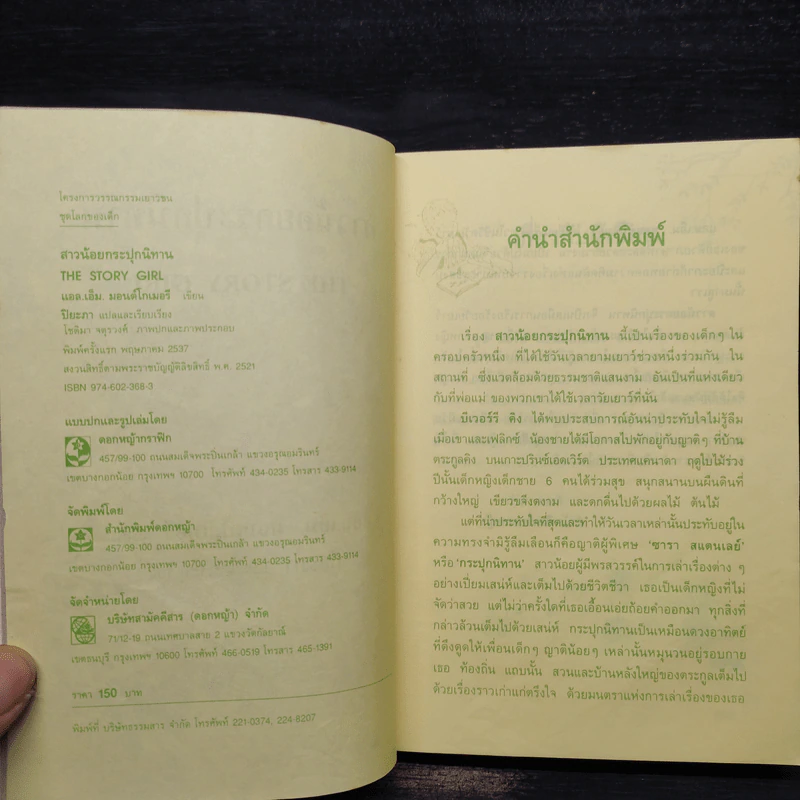 โครงการวรรณกรรมเยาวชน
ชุดโลกของเด็ก
สาวน้อยกระปุกนิทาน
THE STORY GIRL
แอล.เอ็ม. มอนต์โกเมอรี เขียน
ปิยะภา แปลและเรียบเรียง
โชติมา จตุรวงศ์ ภาพปกและภาพประกอบ
พิมพ์ครั้งแรก พฤษภาคม 2537
สงวนสิทธิ์ตามพระราชบัญญัติลิขสิทธิ์ พ.ศ. 2521
ISBN 974-602-368-3
แบบปกและรูปเล่มโดย
ดอกหญ้ากราฟิก
457/99-100 ถนนสมเด็จพระปิ่นเกล้า แขวงอรุณอมรินทร์
เขตบางกอกน้อย กรุงเทพฯ 10700 โทรศัพท์ 434-0235 โทรสาร 433-9114
จัดพิมพ์โดย
สำนักพิมพ์ดอกหญ้า
457/99-100 ถนนสมเด็จพระปิ่นเกล้า แขวงอรุณอมรินทร์
เขตบางกอกน้อย กรุงเทพฯ 10700 โทรศัพท์ 434-0235 โทรสาร 433-9114
จัดจำหน่ายโดย
บริษัทสามัคคีสาร (ดอกหญ้า) จำกัด
71/12-19 ถนนเทศบาลสาย 2 แขวงวัดกัลยาณ์
เขตธนบุรี กรุงเทพฯ 10600 โทรศัพท์ 466-0519 โทรสาร 465-1391
ราคา 150 บาท
พิมพ์ที่ บริษัทธรรมสาร จำกัด โทรศัพท์ 221-0374, 224-8207
คำนำสำนักพิมพ์
เรื่อง สาวน้อยกระปุกนิทาน นี้เป็นเรื่องของเด็กๆ ใน
ครอบครัวหนึ่ง ที่ได้ใช้วันเวลายามเยาว์ช่วงหนึ่งร่วมกัน ใน
สถานที่ ซึ่งแวดล้อมด้วยธรรมชาติแสนงาม อันเป็นที่แห่งเดียว
กับที่พ่อแม่ ของพวกเขาได้ใช้เวลาวัยเยาว์ที่นั่น
บีเวอร์รี คิง ได้พบประสบการณ์อันน่าประทับใจไม่รู้ลืม
เมื่อเขาและเฟลิกซ์ น้องชายได้มีโอกาสไปพักอยู่กับญาติๆ ที่บ้าน
ตระกูลคิง บนเกาะปรินซ์เอดเวิร์ด ประเทศแคนาดา ฤดูใบไม้ร่วง
ปีนั้นเด็กหญิงเด็กชาย 6 คนได้ร่วมสุข สนุกสนานบนผืนดินที่
กว้างใหญ่ เขียวขจีงดงาม และดกดื่นไปด้วยผลไม้ ต้นไม้
แต่ที่น่าประทับใจที่สุดและทำให้วันเวลาเหล่านั้นประทับอยู่ใน
ความทรงจำมิรู้ลืมเลือนก็คือญาติผู้พิเศษ 'ซารา สแตนเลย์'
หรือ 'กระปุกนิทาน' สาวน้อยผู้มีพรสวรรค์ในการเล่าเรื่องต่าง ๆ
อย่างเปี่ยมเสน่ห์และเต็มไปด้วยชีวิตชีวา เธอเป็นเด็กหญิงที่ไม่
จัดว่าสวย แต่ไม่ว่าครั้งใดที่เธอเอื้อนเอ่ยถ้อยคำออกมา ทุกสิ่งที่
กล่าวล้วนเต็มไปด้วยเสน่ห์ กระปุกนิทานเป็นเหมือนดวงอาทิตย์
ที่ดึงดูดให้เพื่อนเด็กๆ ญาติน้อยๆ เหล่านั้นหมุนวนอยู่รอบกาย
เธอ ท้องถิ่น แถบนั้น สวนและบ้านหลังใหญ่ของตระกูลเต็มไป
ด้วยเรื่องราวเก่าแก่ตรึงใจ ด้วยมนตราแห่งการเล่าเรื่องของเธอ